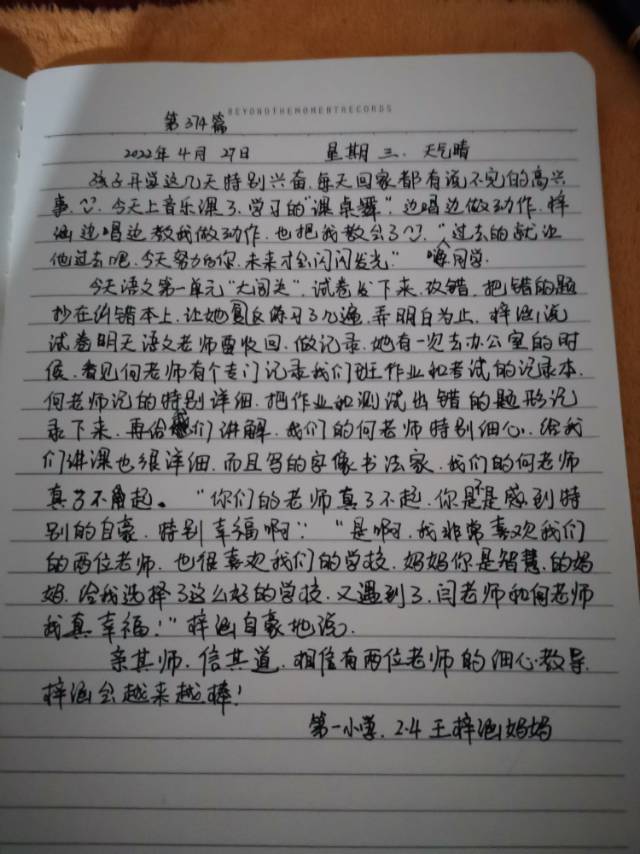 BEYONDTHEMOMENTRECORDS
第374篇
2022年4月27日 星期三. 天气晴
孩子开学这几天特别兴奋.每天回家都有说不完的高兴
事.今天上音乐课了.学习的"课桌舞".边唱边做动作.梓
涵边唱边教我做动作.也把我教会了."过去的就让
他过去吧.今天努力的你.未来才会闪闪发光." 嗨同学.
今天语文第一单元"大闯关".试卷发下来.改错.把错的题
抄在纠错本上.让她反复练习了几遍.弄明白为止.梓涵说
试卷明天语文老师要收回.做记录.她有一次去办公室的时
候.看见何老师有个专门记录我们班作业和考试的记录本.
何老师记的特别详细.把作业和测试出错的题形记
录下来.再给我们讲解.我们的何老师特别细心.给我
们讲课也很详细.而且写的字像书法家.我们的何老师
真了不起。"你们的老师真了不起.你是不是感到特
别的自豪.特别幸福啊""是啊.我非常喜欢我们
的两位老师.也很喜欢我们的学校.妈妈你是智慧的妈
妈.给我选择了这么好的学校.又遇到了.闫老师和何老师
我真幸福!"梓涵自豪地说.
亲其师.信其道.相信有两位老师的细心教导.
梓涵会越来越棒!
第一小学.2.4 王梓涵妈妈